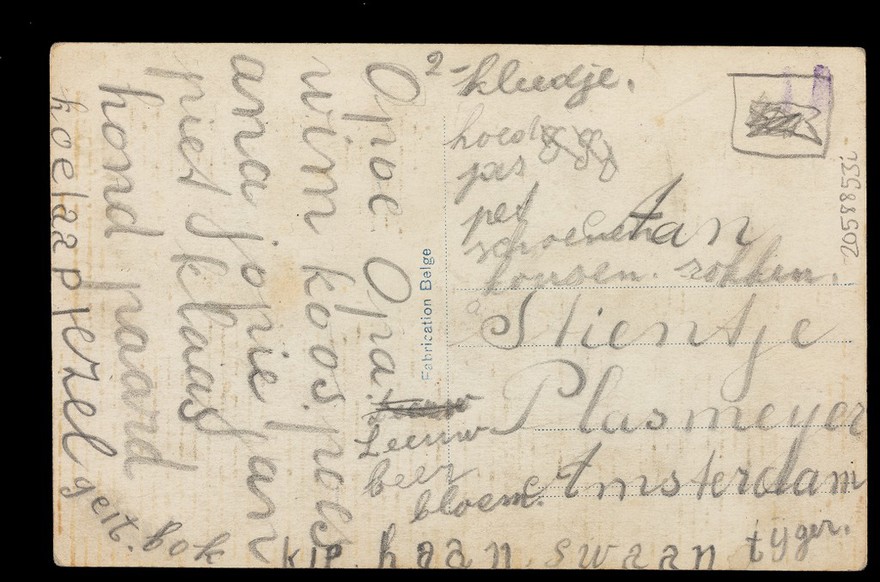 Opoe. Opa.
wim koos. poes
ana jopie jan
piet klaas
hond paard
koe aap ezel geit. bok kip. haan. swaan tyger.
Leeuw
beer
bloem.
Fabrication Belge
2-kleedje.
hoed
jas
pet
schoenen
kousen. rokken.
Aan
Stientje
Plasmeyer
Amsterdam
20588531